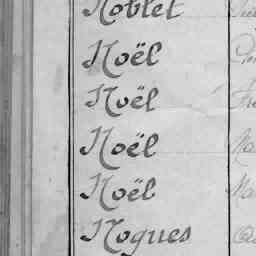 Noblet
Noël
Noël
Noël
Noël
Nogues